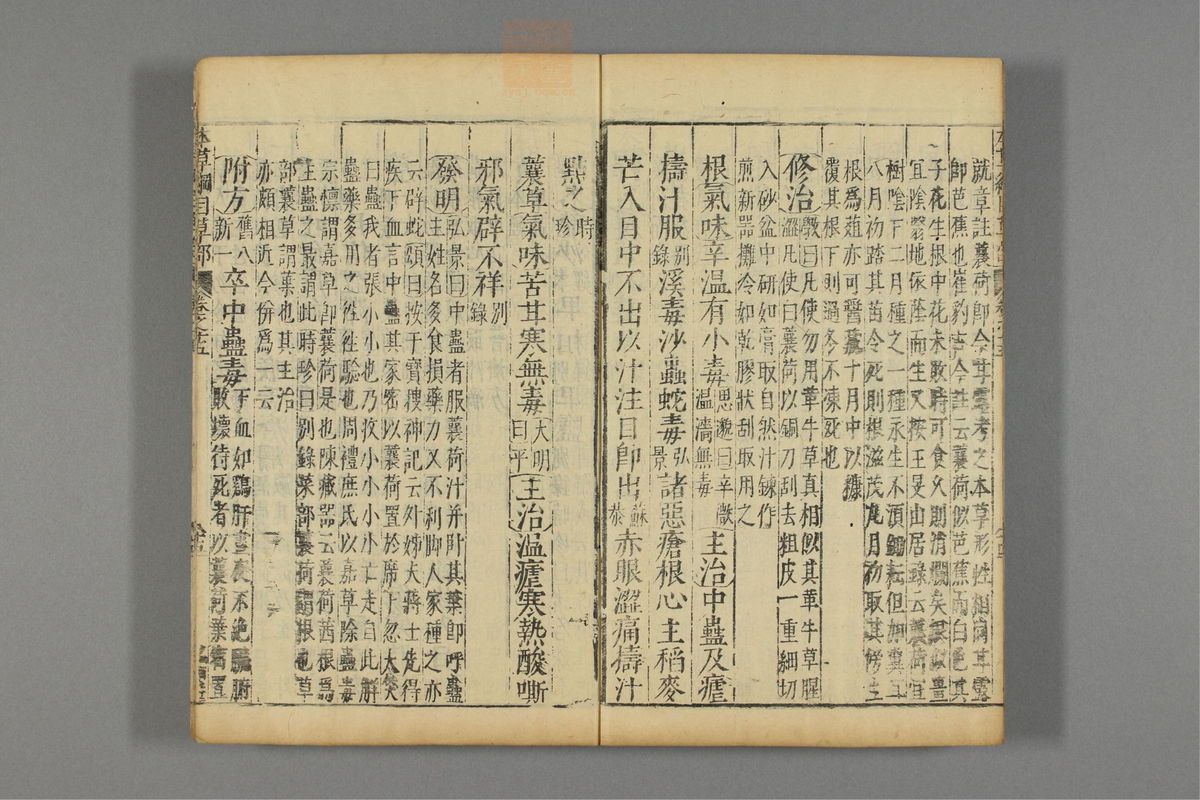 就章註蘘荷卽今甘露考之本草形性相同甘露
卽芭蕉也崔豹古今註云蘘荷似芭蕉而白色其
子花生根中花未敗時可食久則消爛矣根似薑
宜陰翳地依蔭而生又按王旻山居錄云蘘荷宜
樹陰下二月種之一種永生不須鋤耘但加糞耳
八月初踏其苗令死則根滋茂九月初取其傍生
根爲葅亦可醬藏十月中以糠
覆其根下則過冬不凍死也
修治斅曰凡使勿用革牛草真相似其革牛草腥
澀凡使曰蘘荷以銅刀刮去粗皮一重細切
入砂盆中研如膏取自然汁鍊作
煎新器攤冷如乾膠狀刮取用之
根氣味辛温有小毒思邈曰辛微温濇無毒主治中蠱及瘧
擣汁服别錄溪毒沙蝨蛇毒弘景諸惡瘡根心主稻麥
芒入目中不出以汁注目卽出蘇恭赤眼澀痛擣汁
點之時珍
蘘草氣味苦甘寒無毒大明曰平主治温瘧寒熱酸嘶
邪氣辟不祥别錄
發明弘景曰中蠱者服蘘荷汁并卧其葉卽呼蠱
主姓名多食損藥力又不利脚人家種之亦
云辟蛇頌曰按于寶搜神記云外姊夫蔣士先得
疾下血言中蠱其家密以蘘荷置於席下忽大笑
曰蠱我者張小小也乃收小小小亡走自此解
蠱藥多用之徃徃驗也周禮庶氏以嘉草除蠱毒
宗懔謂嘉草卽蘘荷是也陳藏器云蘘荷茜根爲
主蠱之最謂此時珍曰别錄菜部蘘荷謂根也草
部蘘草謂葉也其主治
亦頗相近今併爲一云
附方舊八新一卒中蠱毒下血如鷄肝晝夜不絶臟腑
敗壞待死者以蘘荷葉密置
本草綱目草部